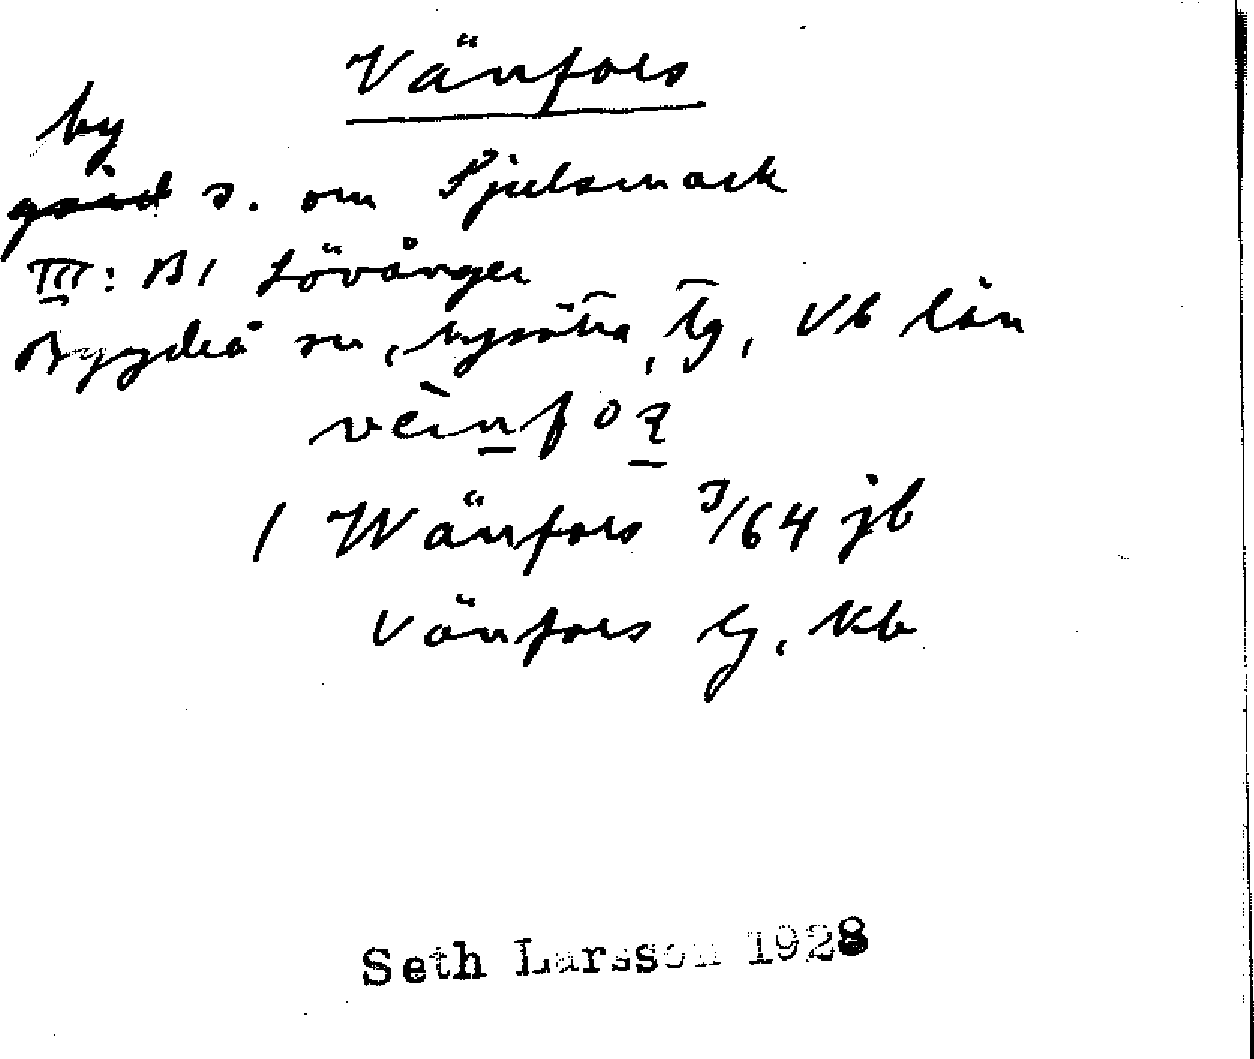 Vänfors
by
gård s. om Spjutsmark
III: B1 Lövånger
Bygdeå sn, Nysätra tg, Vb län
1 Wänfors 3/64 jb
Vänfors Gg. Kb
Seth Larsson 1928